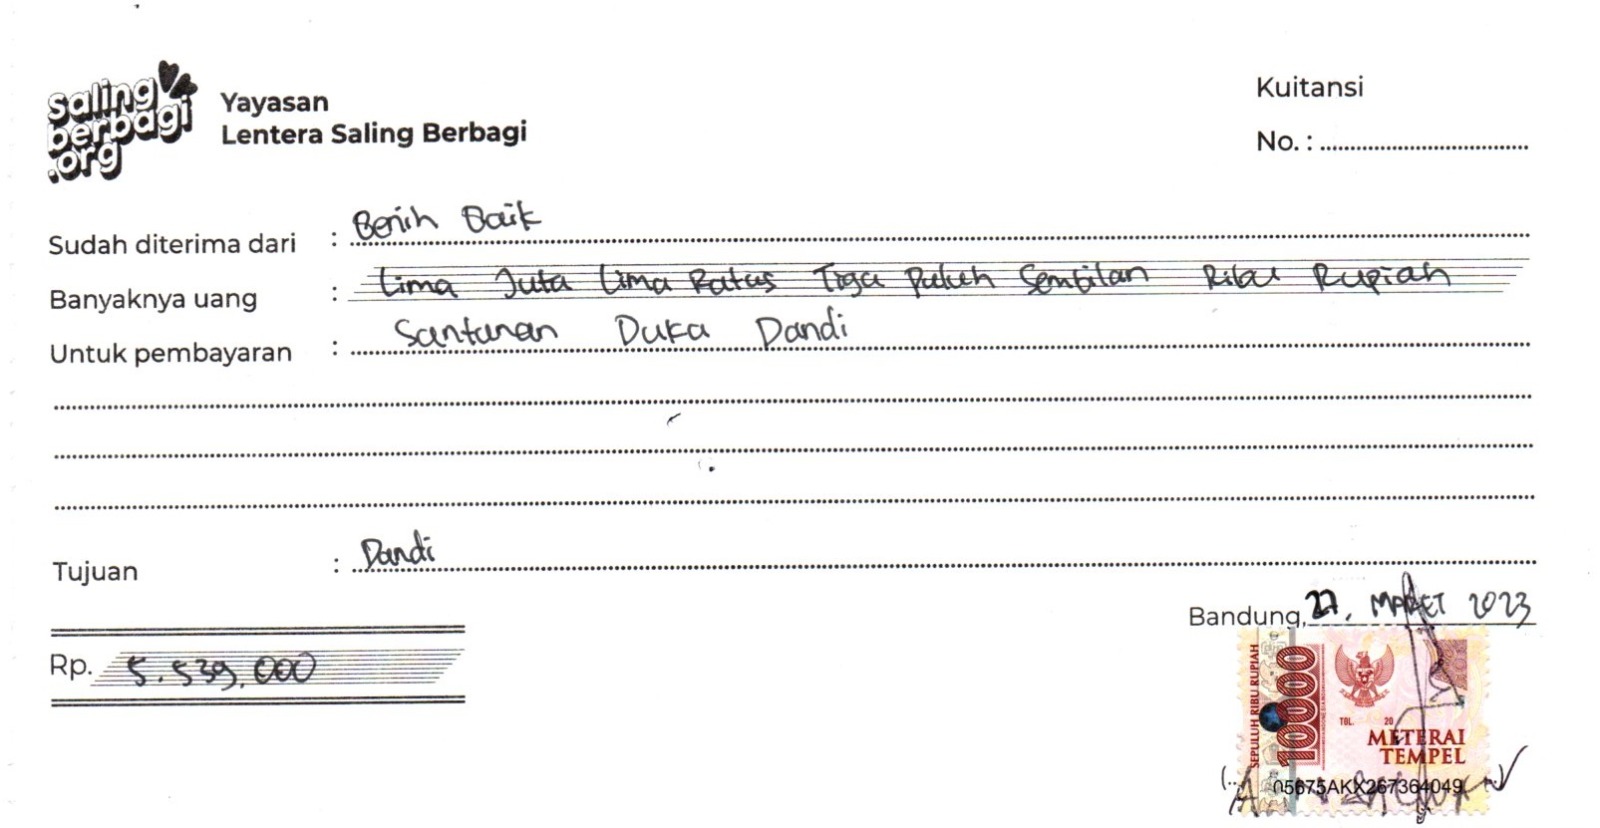 saling
berbagi
.org
Yayasan
Lentera Saling Berbagi
Kuitansi
No. :
Sudah diterima dari : Benih Baik
Banyaknya uang : Lima Juta Lima Ratus Tiga Puluh Sembilan Ribu Rupiah
Untuk pembayaran : Santunan Duka Dandi
Tujuan : Dandi
Bandung, 27, MARET 2023
Rp. 5.539.000
SEPULUH RIBU RUPIAH
10000
TGL. 20
METERAI
TEMPEL
05675AKX267364049